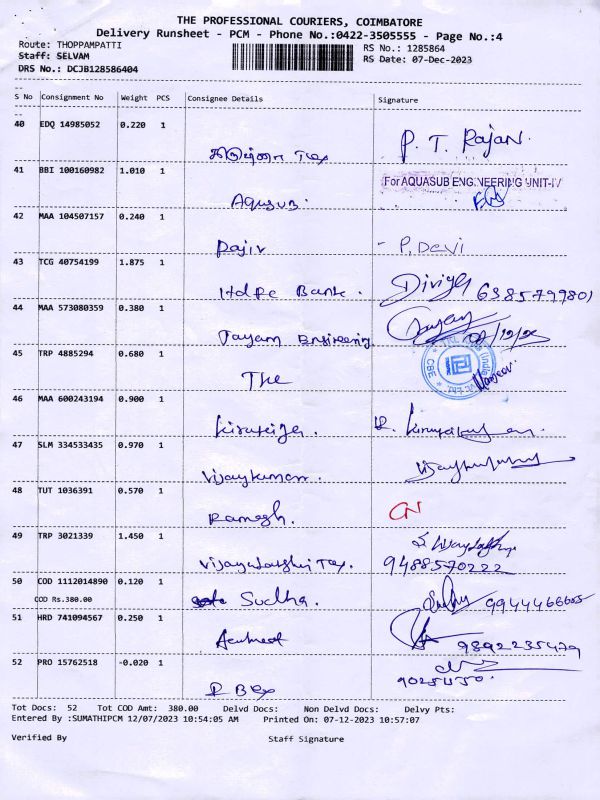 THE PROFESSIONAL COURIERS, COIMBATORE
Delivery Runsheet - PCM - Phone No.:0422-3505555 - Page No.:4
Route: THOPPAMPATTI RS No.: 1285864
Staff: SELVAM RS Date: 07-Dec-2023
DRS No.: DCJB128586404
S No Consignment No Weight PCS Consignee Details Signature
40 EDQ 14985052 0.220 1 Tex P. T. Rajan
41 BBI 100160982 1.010 1 Aqusub. For AQUASUB ENGINEERING UNIT-IV
42 MAA 104507157 0.240 1 Rajiv - P. Devi
43 TCG 40754199 1.875 1 Hdfc Bank. Divya 6385799801
44 MAA 573080359 0.380 1 Jayam Engineering
45 TRP 4885294 0.680 1 The CBE
46 MAA 600243194 0.900 1
47 SLM 334533435 0.970 1 Vijaykumar. Vijaykumar
48 TUT 1036391 0.570 1 Ramesh. CN
49 TRP 3021339 1.450 1 Vijayalakshmi Tex.
9488570222
50 COD 1112014890 0.120 1 Sudha.
COD Rs.380.00 9944466605
51 HRD 741094567 0.250 1 9892235479
52 PRO 15762518 -0.020 1
Tot Docs: 52 Tot COD Amt: 380.00 Delvd Docs: Non Delvd Docs: Delvy Pts:
Entered By :SUMATHIPCM 12/07/2023 10:54:05 AM Printed On: 07-12-2023 10:57:07
Verified By Staff Signature